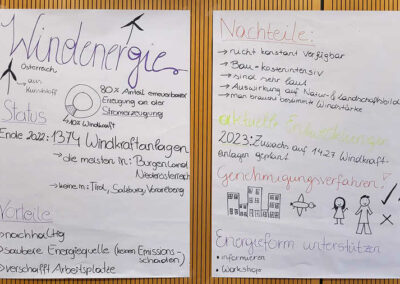 Windenergie
Österreich
aus
Kunststoff
80% Anteil erneuerbarer
Erzeugung an der
Stromerzeugung
10% Windkraft
Status
Ende 2022: 1374 Windkraftanlagen
→ die meisten in: Burgenland
Niederösterreich
→ keine in: Tirol, Salzburg, Vorarlberg
Vorteile
→ nachhaltig
→ saubere Energiequelle (keinen Emissions-
schaden)
→ verschafft Arbeitsplätze
Nachteile:
→ nicht konstant verfügbar
→ Bau = kostenintensiv
→ sind sehr laut
→ Auswirkung auf Natur- & Landschaftsbild
→ man braucht bestimmte Windstärke
aktuelle Entwicklungen
2023: Zuwachs auf 1427 Windkraft-
anlagen geplant
Genehmigungsverfahren?
Energieform unterstützen
• informieren
• Workshops